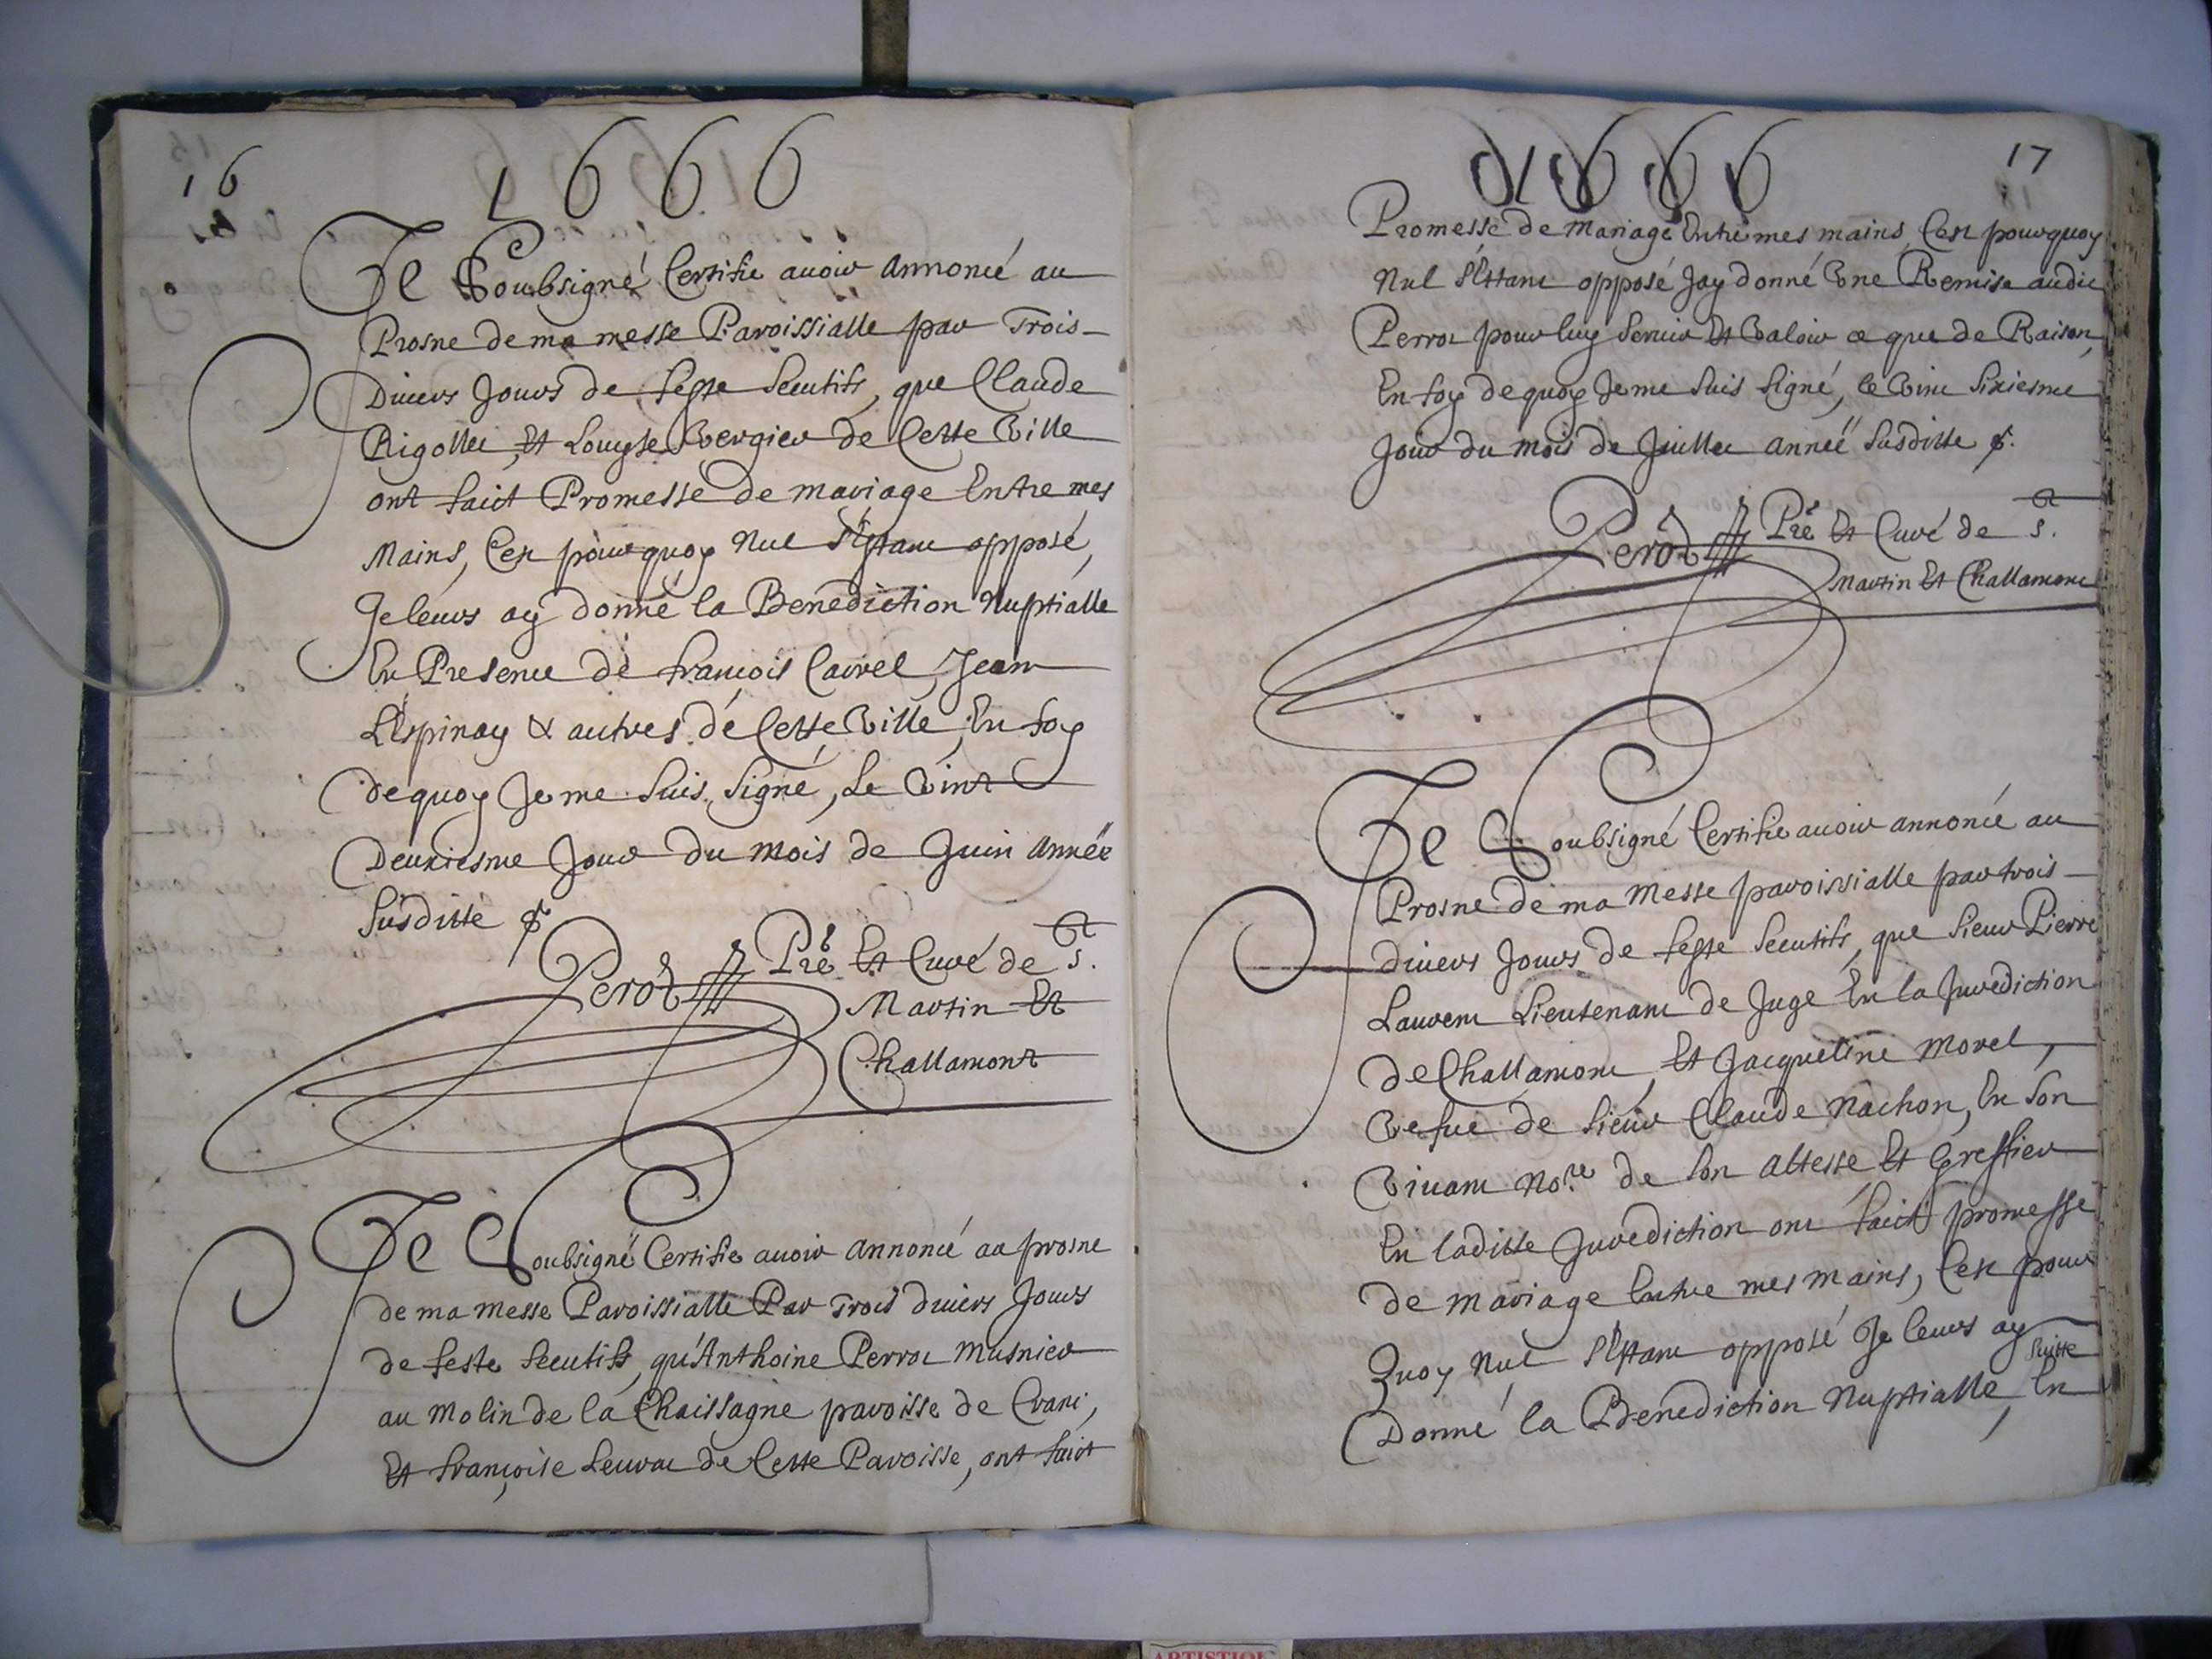 16
1666
Je Soubsigné Certifie auoir annoncé au
Prosne de ma messe Paroissialle par Trois
Diuers Jours de feste secutifs, que Claude
Rigollet, Et Louyse Vergier de Cette Ville
ont faict Promesse de mariage Entre mes
Mains, C'est pourquoy Nul s'Estant opposé,
Je leurs ay donné la Benediction Nuptialle
En Presence de françois Cairel, Jean
L'Espinay & autres de Cette Ville, En foy
de quoy Je me suis signé, Le Vint
Deuxiesme Jour du mois de Juin année
susditte
Perot Pre Et Curé de St.
Martin Et
Challamont
Je Soubsigné Certifie auoir annoncé au prosne
de ma messe Paroissialle Par Trois diuers Jours
de feste secutifs, qu'Anthoine Perrot Musnier
au Molin de la Chaissagne paroisse de Crans,
Et françoise Leurat de Cette Paroisse, ont faict
1666
17
Promesse de mariage Entre mes mains C'est pourquoy
Nul s'Estant opposé Jay donné Vne Remise audit
Perrot pour luy seruir Et Valoir ce que de Raison,
En foy de quoy Je me suis signé, le Vint sixiesme
Jour du mois de Juillet année susditte
Perot Pre Et Curé de St.
Martin Et Challamont
Je Soubsigné Certifie auoir annoncé au
Prosne de ma Messe paroissialle par trois
diuers Jours de feste secutifs, que sieur Pierre
Laurent Lieutenant de Juge En la Jurediction
de Challamont, Et Jacqueline Morel,
Vefue de sieur Claude Nachon, En son
Viuant Nore. de son altesse Et Greffier
En laditte Jurediction ont faict promesse
de mariage Entre mes mains, C'est pour
Quoy Nul s'Estant opposé Je leurs ay
Donné la Benediction Nuptialle, En
suitte